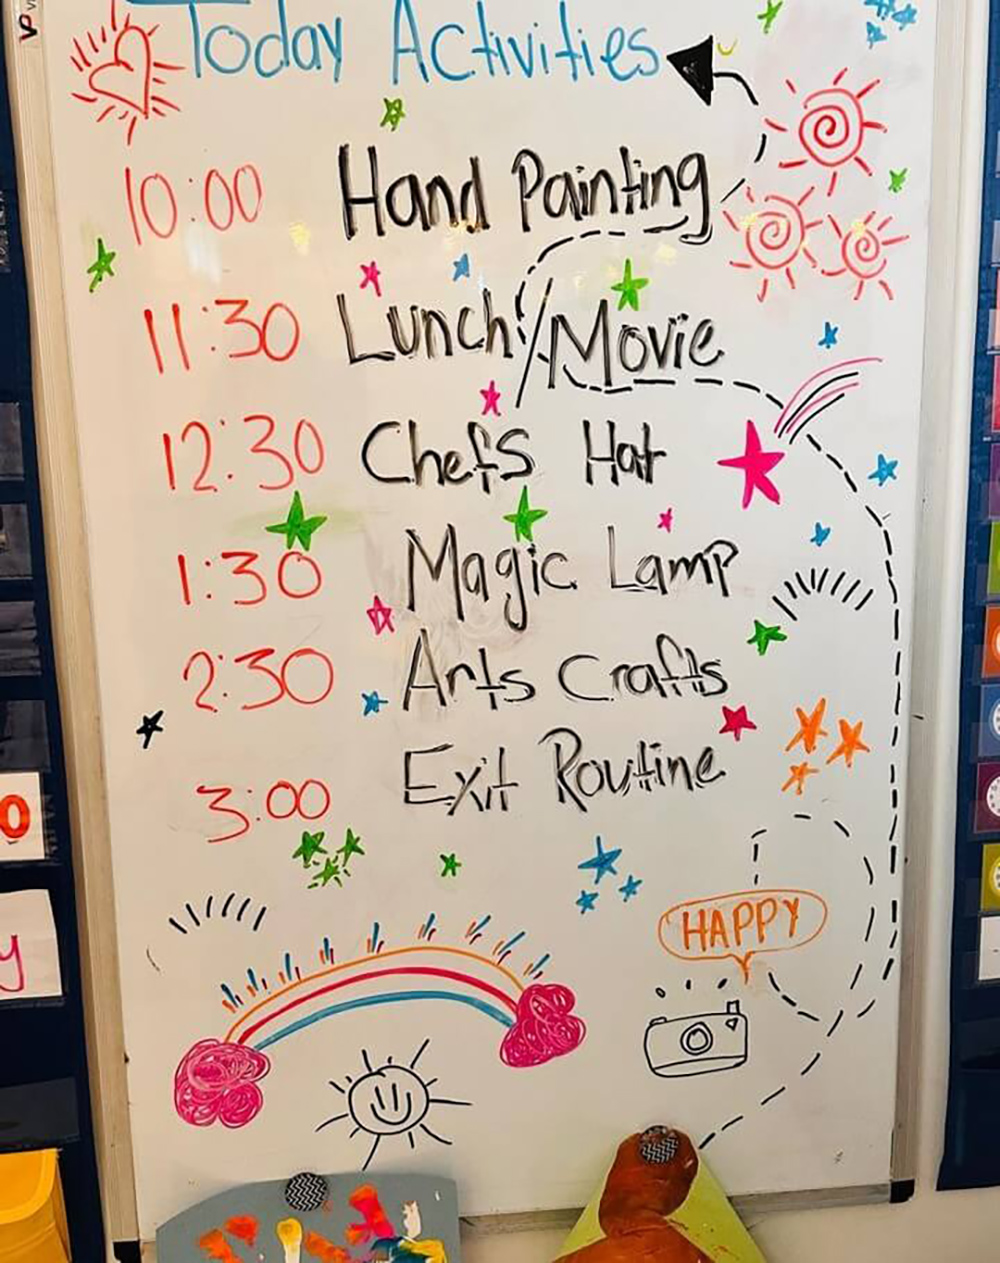 Today Activities
10:00 Hand Painting
11:30 Lunch/Movie
12:30 Chefs Hat
1:30 Magic Lamp
2:30 Arts Crafts
3:00 Exit Routine
HAPPY